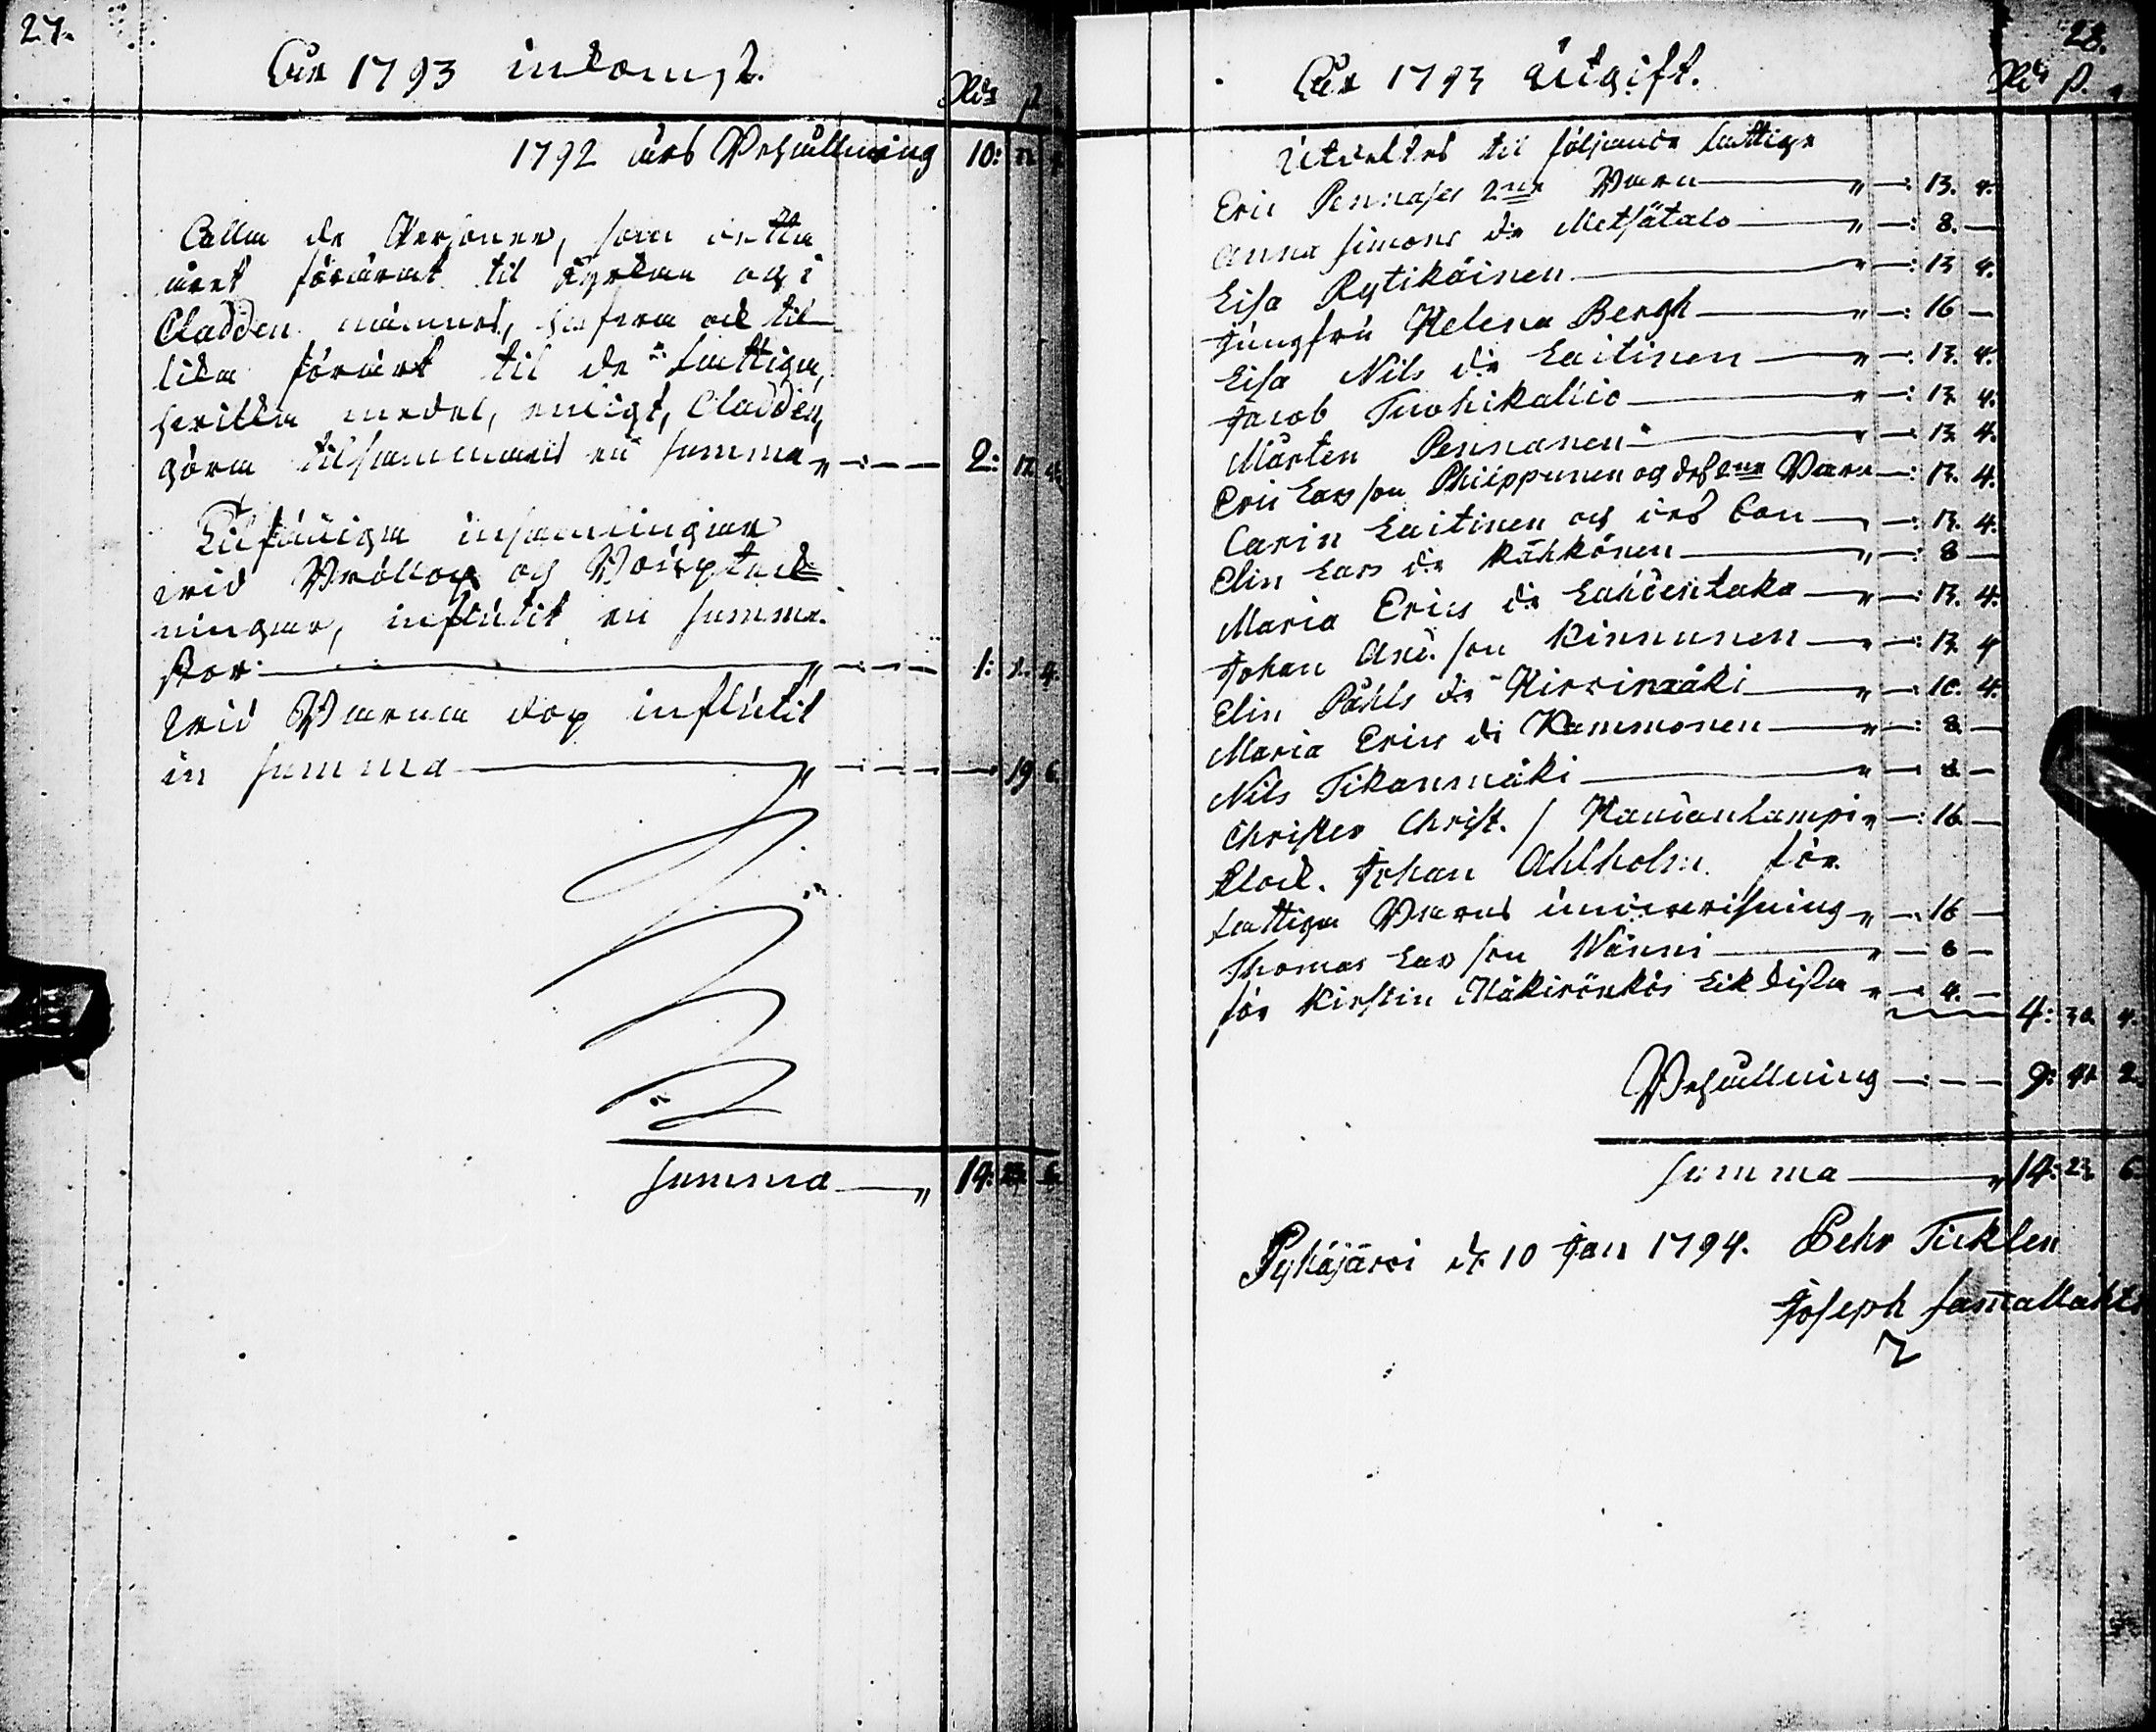 27.
Åhr 1793 inkomst.
Rdr ß
1792 års Behållning 10:
Alla de Personer, som detta
året förärat til Kyrkan og i
Cladden nämnes, hafva ock til
lika förärt til de fattiga,
hvilka medel, enligt, Cladden,
göra tilsammans en summa „ 2: 12. 4.
Tilfällige insamlingar
wid Bröllop og
ningar, influtit en summa
stor 1: 4.
wid Barna dop influtit
in summa „ 19 6.
summa „ 14: 23. 6.
28.
Åhr 1793 Utgift.
Rdr ß.
Utdeltes til följande fattige
Eric Pennases 2ne Barn „ 13. 4.
Anna Simons dr Metsätalo „ 8.
Lisa Rytikäinen „ 13 4.
Jungfru Helena Bergh „ 16
Lisa Nils dr Laitinen „ 13. 4.
Jacob Tuohikallio „ 13. 4.
Mårten Pennanen „ 13. 4.
Eric Larsson Philppunen og dess 2ne Barn 13. 4.
Carin Laitinen och des Barn 13. 4.
Elin Lars dr Kähkönen „ 8
Maria Erics dr Lahdentaka „ 13. 4.
Johan And. son Kinnunen „ 13. 4
Elin Påhls dr Hirvimäki „ 10. 4.
Maria Erics dr Kammonen „ 8
Nils Tikanmäki „ 8
Christer Christ. s „ 16
Klock. Johan Ahlholm för
fattiga Barns underwisning „ 16
Thomas Lars son Nänni „ 8
för Kirstin Mäkirönkös Likkista „ 4.
4: 30. 4.
Behållning 9: 41 2.
summa „ 14: 23. 6.
Pyhäjärvi d. 10 Jan 1794. Pehr Ticklen
Joseph